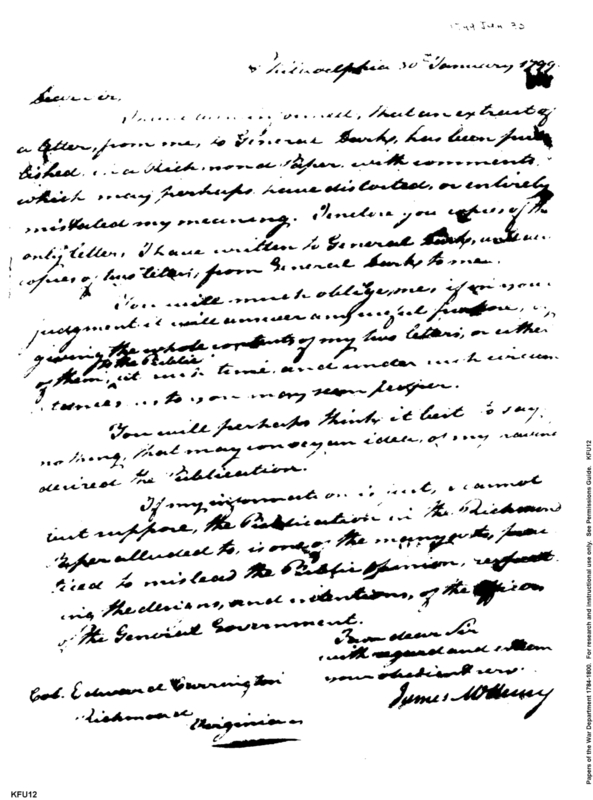 1799 Jan 30
Philadelphia 30th January 1799.
Dear sir,
I have been informed, that an extract of
a letter, from me, to General Darke, has been pub
lished in a Richmond Paper with comments
which may perhaps have distorted, or entirely
mistated my meaning. I enclose you copies of the
only letters, I have written to General Darke, and
copies of two letters, from General Darke to me.
You will much oblige, me, if in your
judgment it will answer any useful purpose, by
giving the whole contents of my two letters, or either
of them, to the Public at such time, and under such circum
stances as to you may seem proper.
You will perhaps think it best to say
nothing, that may convey an idea, of my having
desired the Publication.
If my information is just, I cannot
but suppose, the Publication in the Richmond
Paper alluded to, is one of the many arts, prac
ticed to mislead the Public opinion, respect
ing the designs, and intentions, of the Officers
of the General Government.
I am dear Sir
with regard and esteem
your obedient serv.
James McHenry
Col. Edward Carrington
Richmond
Virginia
KFU12
Papers of the War Department 1784-1800. For research and instructional use only. See Permissions Guide. KFU12